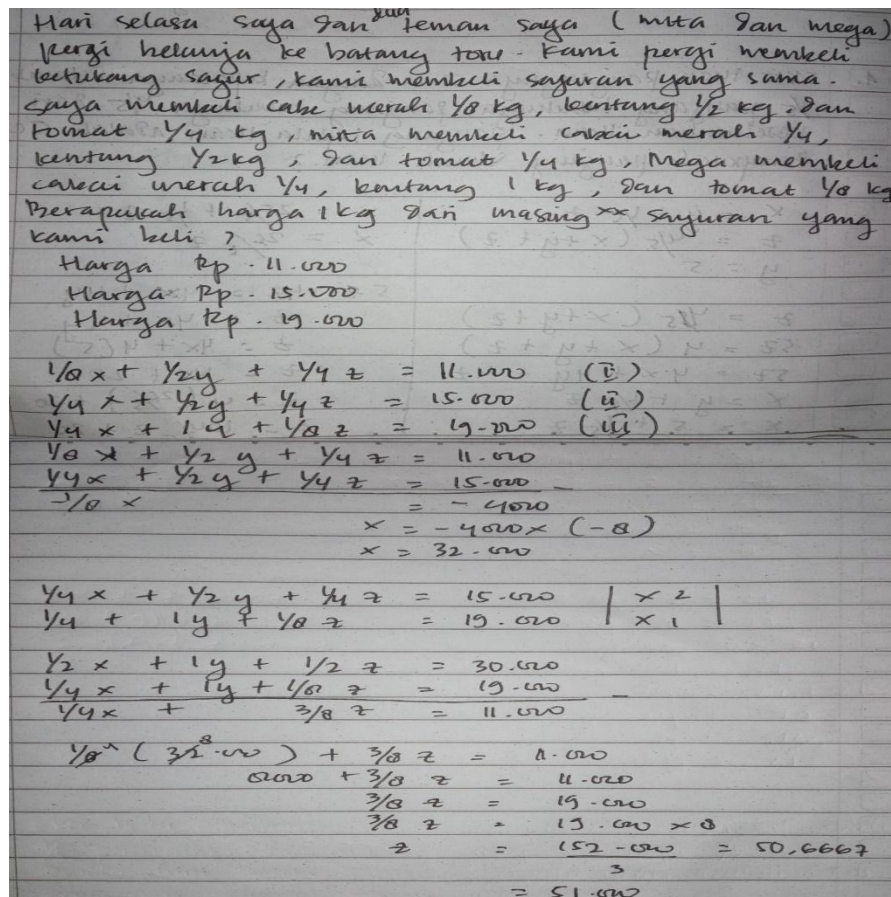 Hari selasa saya dan dan teman saya (mita dan mega)
pergi belanja ke batang toru. Kami pergi membeli
ketukang sayur, kami membeli sayuran yang sama.
saya membeli cabe merah 1/8 kg, kentang 1/2 kg, dan
tomat 1/4 kg, mita membeli cabai merah 1/4,
kentang 1/2 kg, dan tomat 1/4 kg, Mega membeli
cabai merah 1/4, kentang 1 kg, dan tomat 1/8 kg
Berapakah harga 1 kg dari masing xx sayuran yang
kami beli ?
Harga Rp. 11.000
Harga Rp. 15.000
Harga Rp. 19.000
1/8 x + 1/2 y + 1/4 z = 11.000 (I)
1/4 x + 1/2 y + 1/4 z = 15.000 (II)
1/4 x + 1 y + 1/8 z = 19.000 (III)
1/8 x + 1/2 y + 1/4 z = 11.000
1/4 x + 1/2 y + 1/4 z = 15.000 -
-1/8 x = - 4000
x = - 4000 x (-8)
x = 32.000
1/4 x + 1/2 y + 1/4 z = 15.000 | x 2 |
1/4 + 1 y + 1/8 z = 19.000 | x 1 |
1/2 x + 1 y + 1/2 z = 30.000
1/4 x + 1 y + 1/8 z = 19.000 -
1/4 x + 3/8 z = 11.000
( 32.000 ) + 3/8 z = 11.000
8000 + 3/8 z = 11.000
3/8 z = 19.000
3/8 z = 19.000 x 8
z = 152.000 / 3 = 50,6667
= 51.000